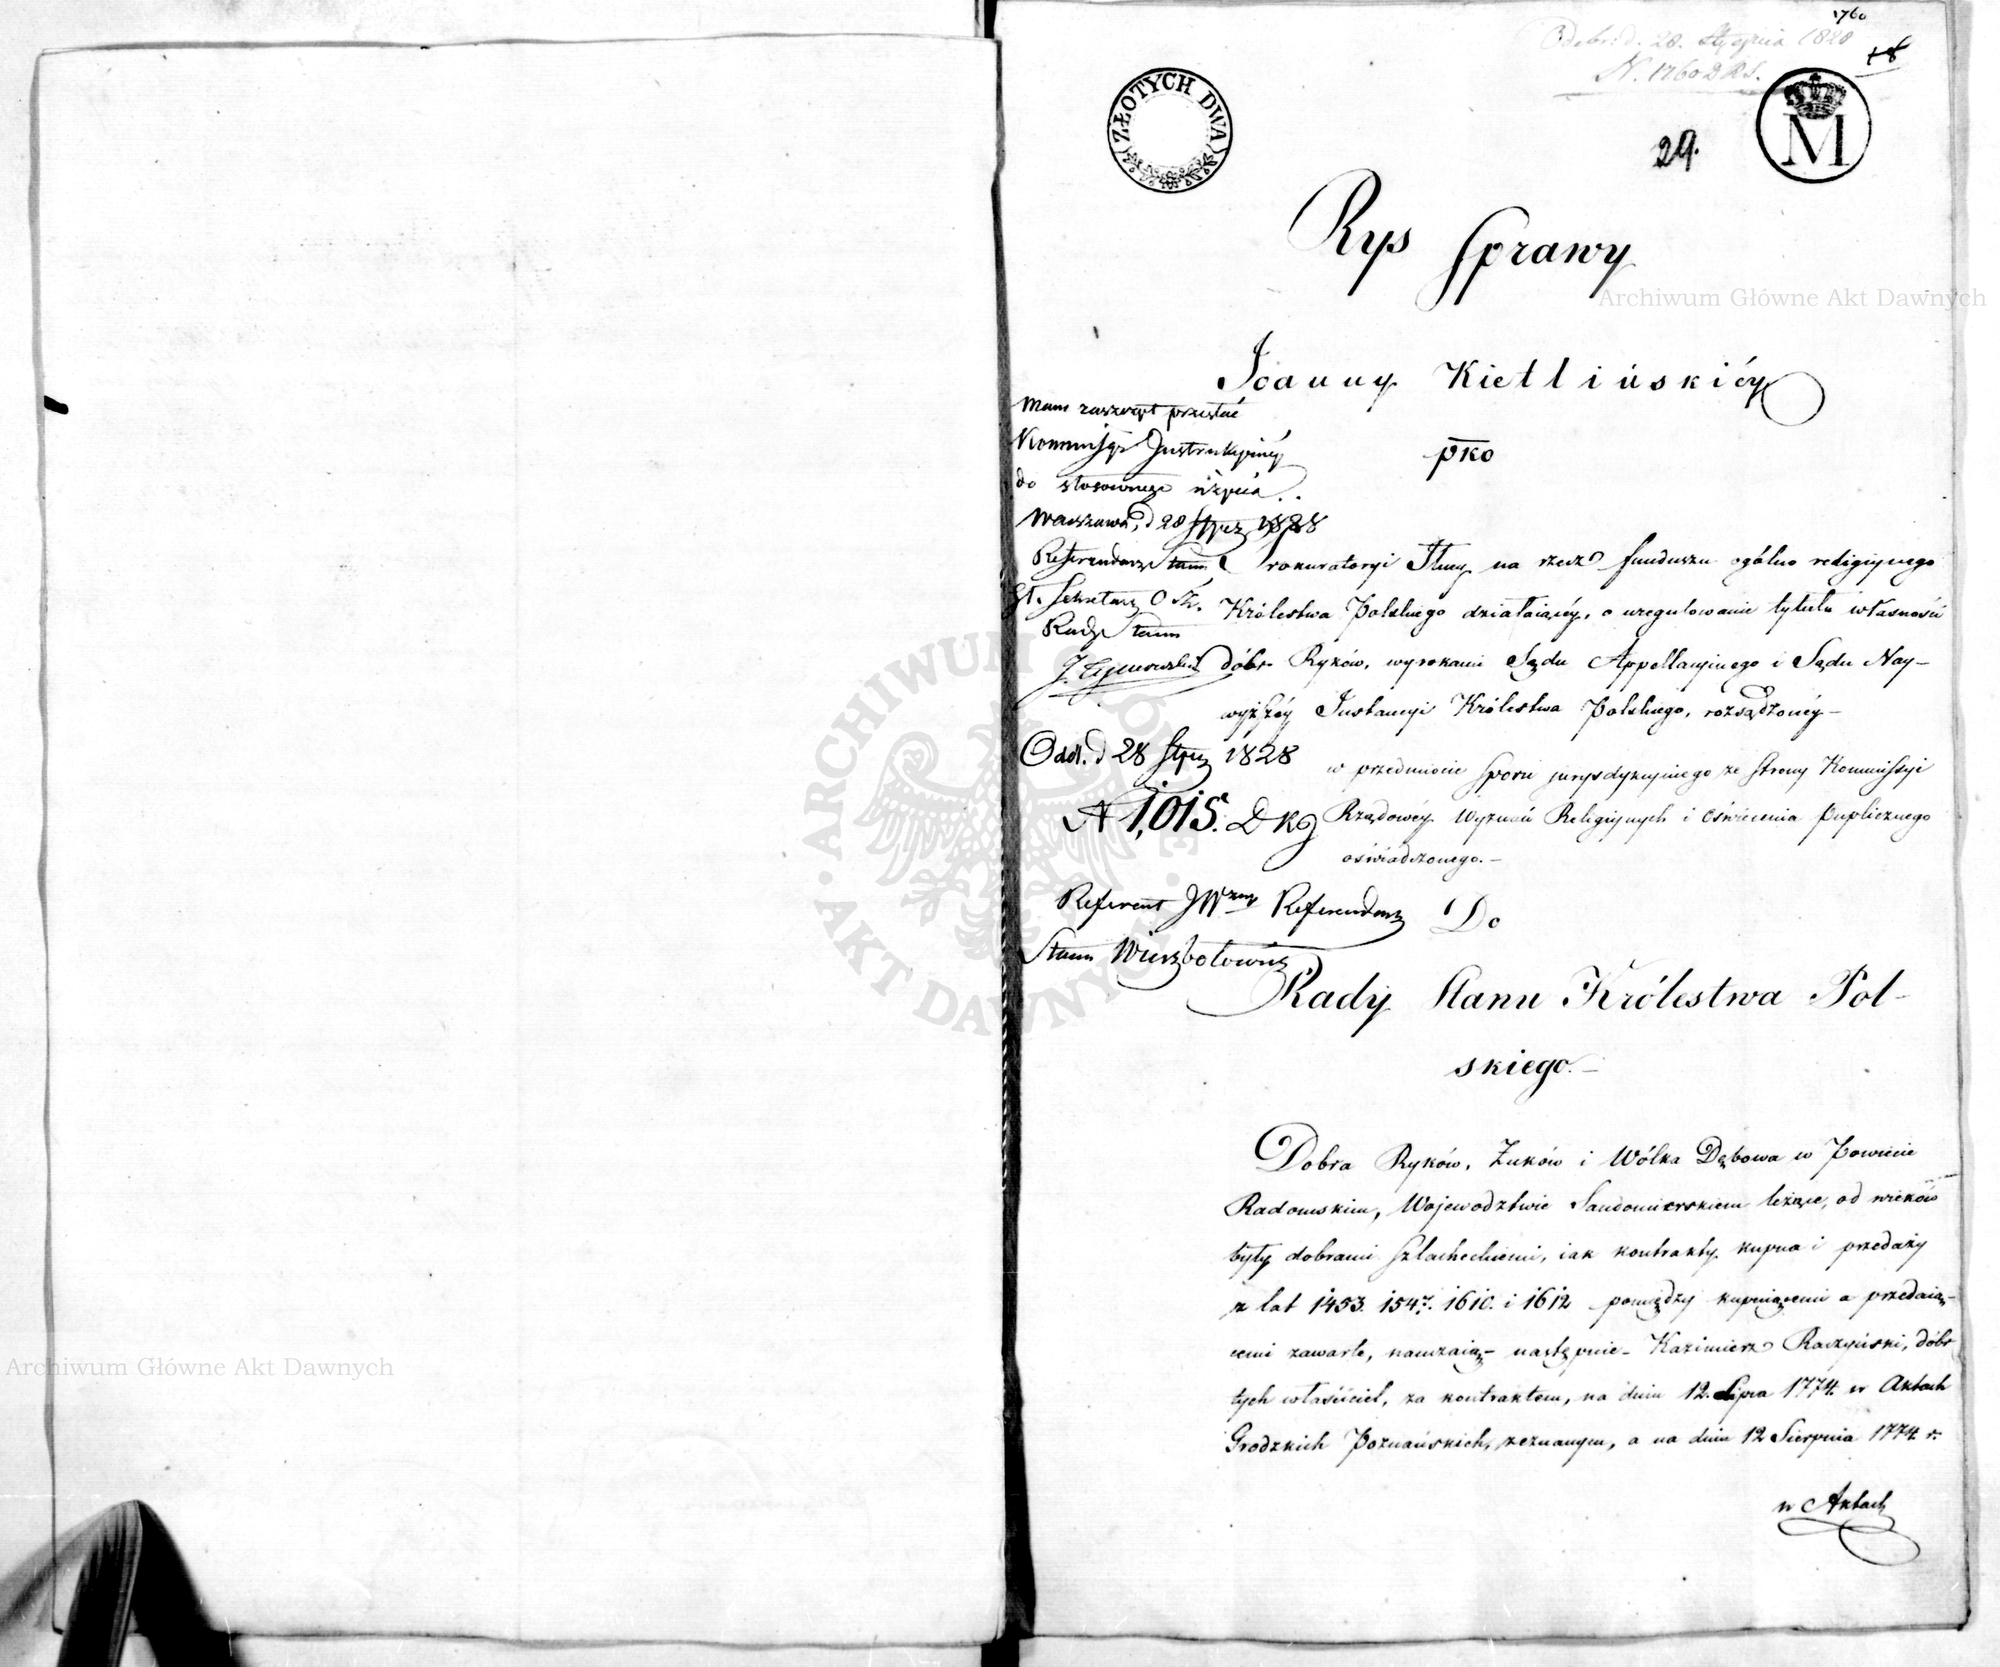 1760
Odebr. d. 28. Stycznia 1828
N. 1760 D R S.
18
ZŁOTYCH DWA
M
29.
Rys Sprawy
Joanny Kietlińskiéy
pko
Mam zaszczyt przesłać
Kommissyi Instrukcyinéy
do stosownego użycia.
Warszawa, d 28 Stycz 1828
Referendarz Stanu
Sekretarz
Rady Stanu
Prokuratoryi Jlney na rzecz funduszu ogólno religiynego
Królestwa Polskiego działaiącéy, o uregulowanie tytułu własności
dóbr Ryków, wyrokami Sądu Appellacyinego i Sądu Nay-
wyższéy Instancyi Królestwa Polskiego, rozsądzonéy –
w przedmiocie sporu jurysdykcyinego ze strony Kommissyi
Rządowéy Wyznań Religiynych i Oświecenia Puplicznego
oświadczonego. –
Odd. d 28 Stycz 1828
N 1,015. D K
Referent JW Referendarz
Stanu Wierzbołowicz
Do
Rady Stanu Królestwa Pol-
skiego. –
Dobra Ryków, Żuków i Wólka Dębowa w Powiecie
Radomskim, Województwie Sandomierskiem leżące, od wieków
były dobrami Szlacheckiemi, iak kontrakty kupna i przedaży
z lat 1453. 1547. 1610. i 1612 pomiędzy kupuiącemi a przedaią-
cemi zawarte, nauczaią – następnie – Kazimierz Raczyński, dóbr
tych właściciel, za kontraktem, na dniu 12. Lipca 1774. w Aktach
Grodzkich Poznańskich, zeznanym, a na dniu 12 Sierpnia 1774 r.
w Aktach
Archiwum Główne Akt Dawnych
Archiwum Główne Akt Dawnych
ARCHIWUM GŁÓWNE · AKT DAWNYCH ·